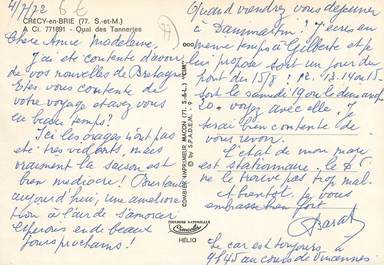 4/7/72 6 €
CRECY-en-BRIE (77. S.-et-M.)
A Ci. 771891 - Quai des Tanneries
Chère Annie Madeleine,
J'ai été contente d'avoir
de vos nouvelles de Bretagne
Etes vous contente de
votre voyage et avez vous
eu beau temps?
Ici les orages n'ont pas
été très violents, mais
vraiment la saison est
bien médiocre! Pourtant
aujourd'hui, une améliora
tion à l'air de s'amorcer
Espérons en de beaux
jours prochains!
COMBIER IMPRIMEUR MACON (71. S.-&-L.) "CIM"
© by S.P.A.D.E.M. - 9
COULEURS NATURELLES
HELIO
Quand viendrez vous déjeuner
à Dammartin? J'écris en
même temps à Gilberte et je
lui propose soit un jour du
pont du 15/8? i.e. 13.14 ou 15
soit le samedi 19 ou le dimanche
20. Voyez avec elle. Je
serai bien contente de
vous revoir.
L'état de mon mari
est stationnaire, le Dr
ne le trouve pas trop mal.
A bientôt, je vous
embrasse bien fort
Barat
Le car est toujours à
9h45 au cours de Vincennes